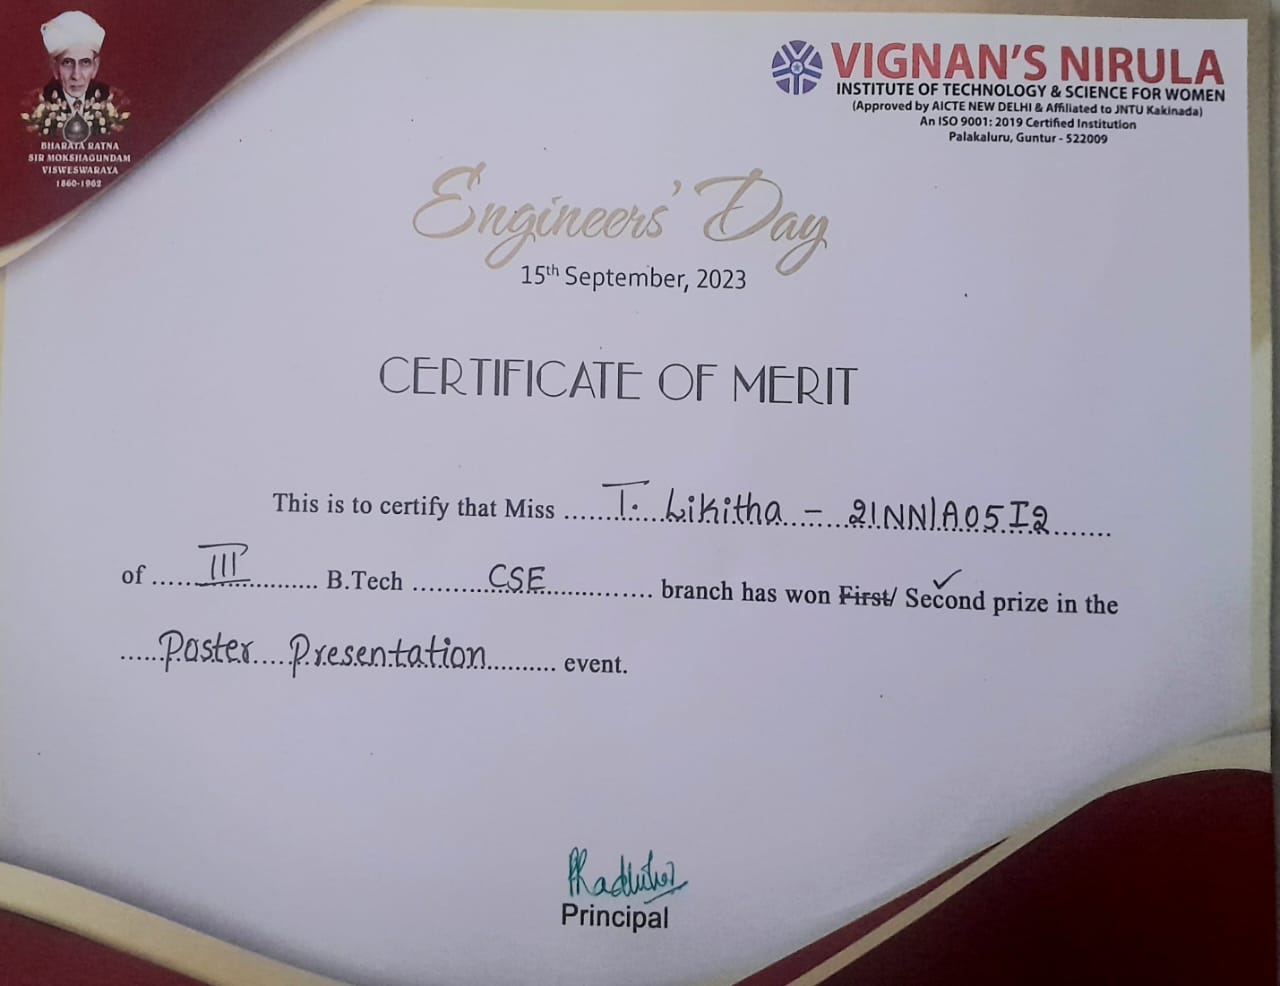 BHARATA RATNA
SIR MOKSHAGUNDAM
VISWESWARAYA
1860-1962
VIGNAN'S NIRULA
INSTITUTE OF TECHNOLOGY & SCIENCE FOR WOMEN
(Approved by AICTE NEW DELHI & Affiliated to JNTU Kakinada)
An ISO 9001: 2019 Certified Institution
Palakaluru, Guntur - 522009
Engineers' Day
15th September, 2023
CERTIFICATE OF MERIT
This is to certify that Miss ......T. Likitha - 21NN1A05I2.......
of .....III............ B.Tech ........CSE............ branch has won First/ Second prize in the
.....Poster....Presentation.......... event.
Principal